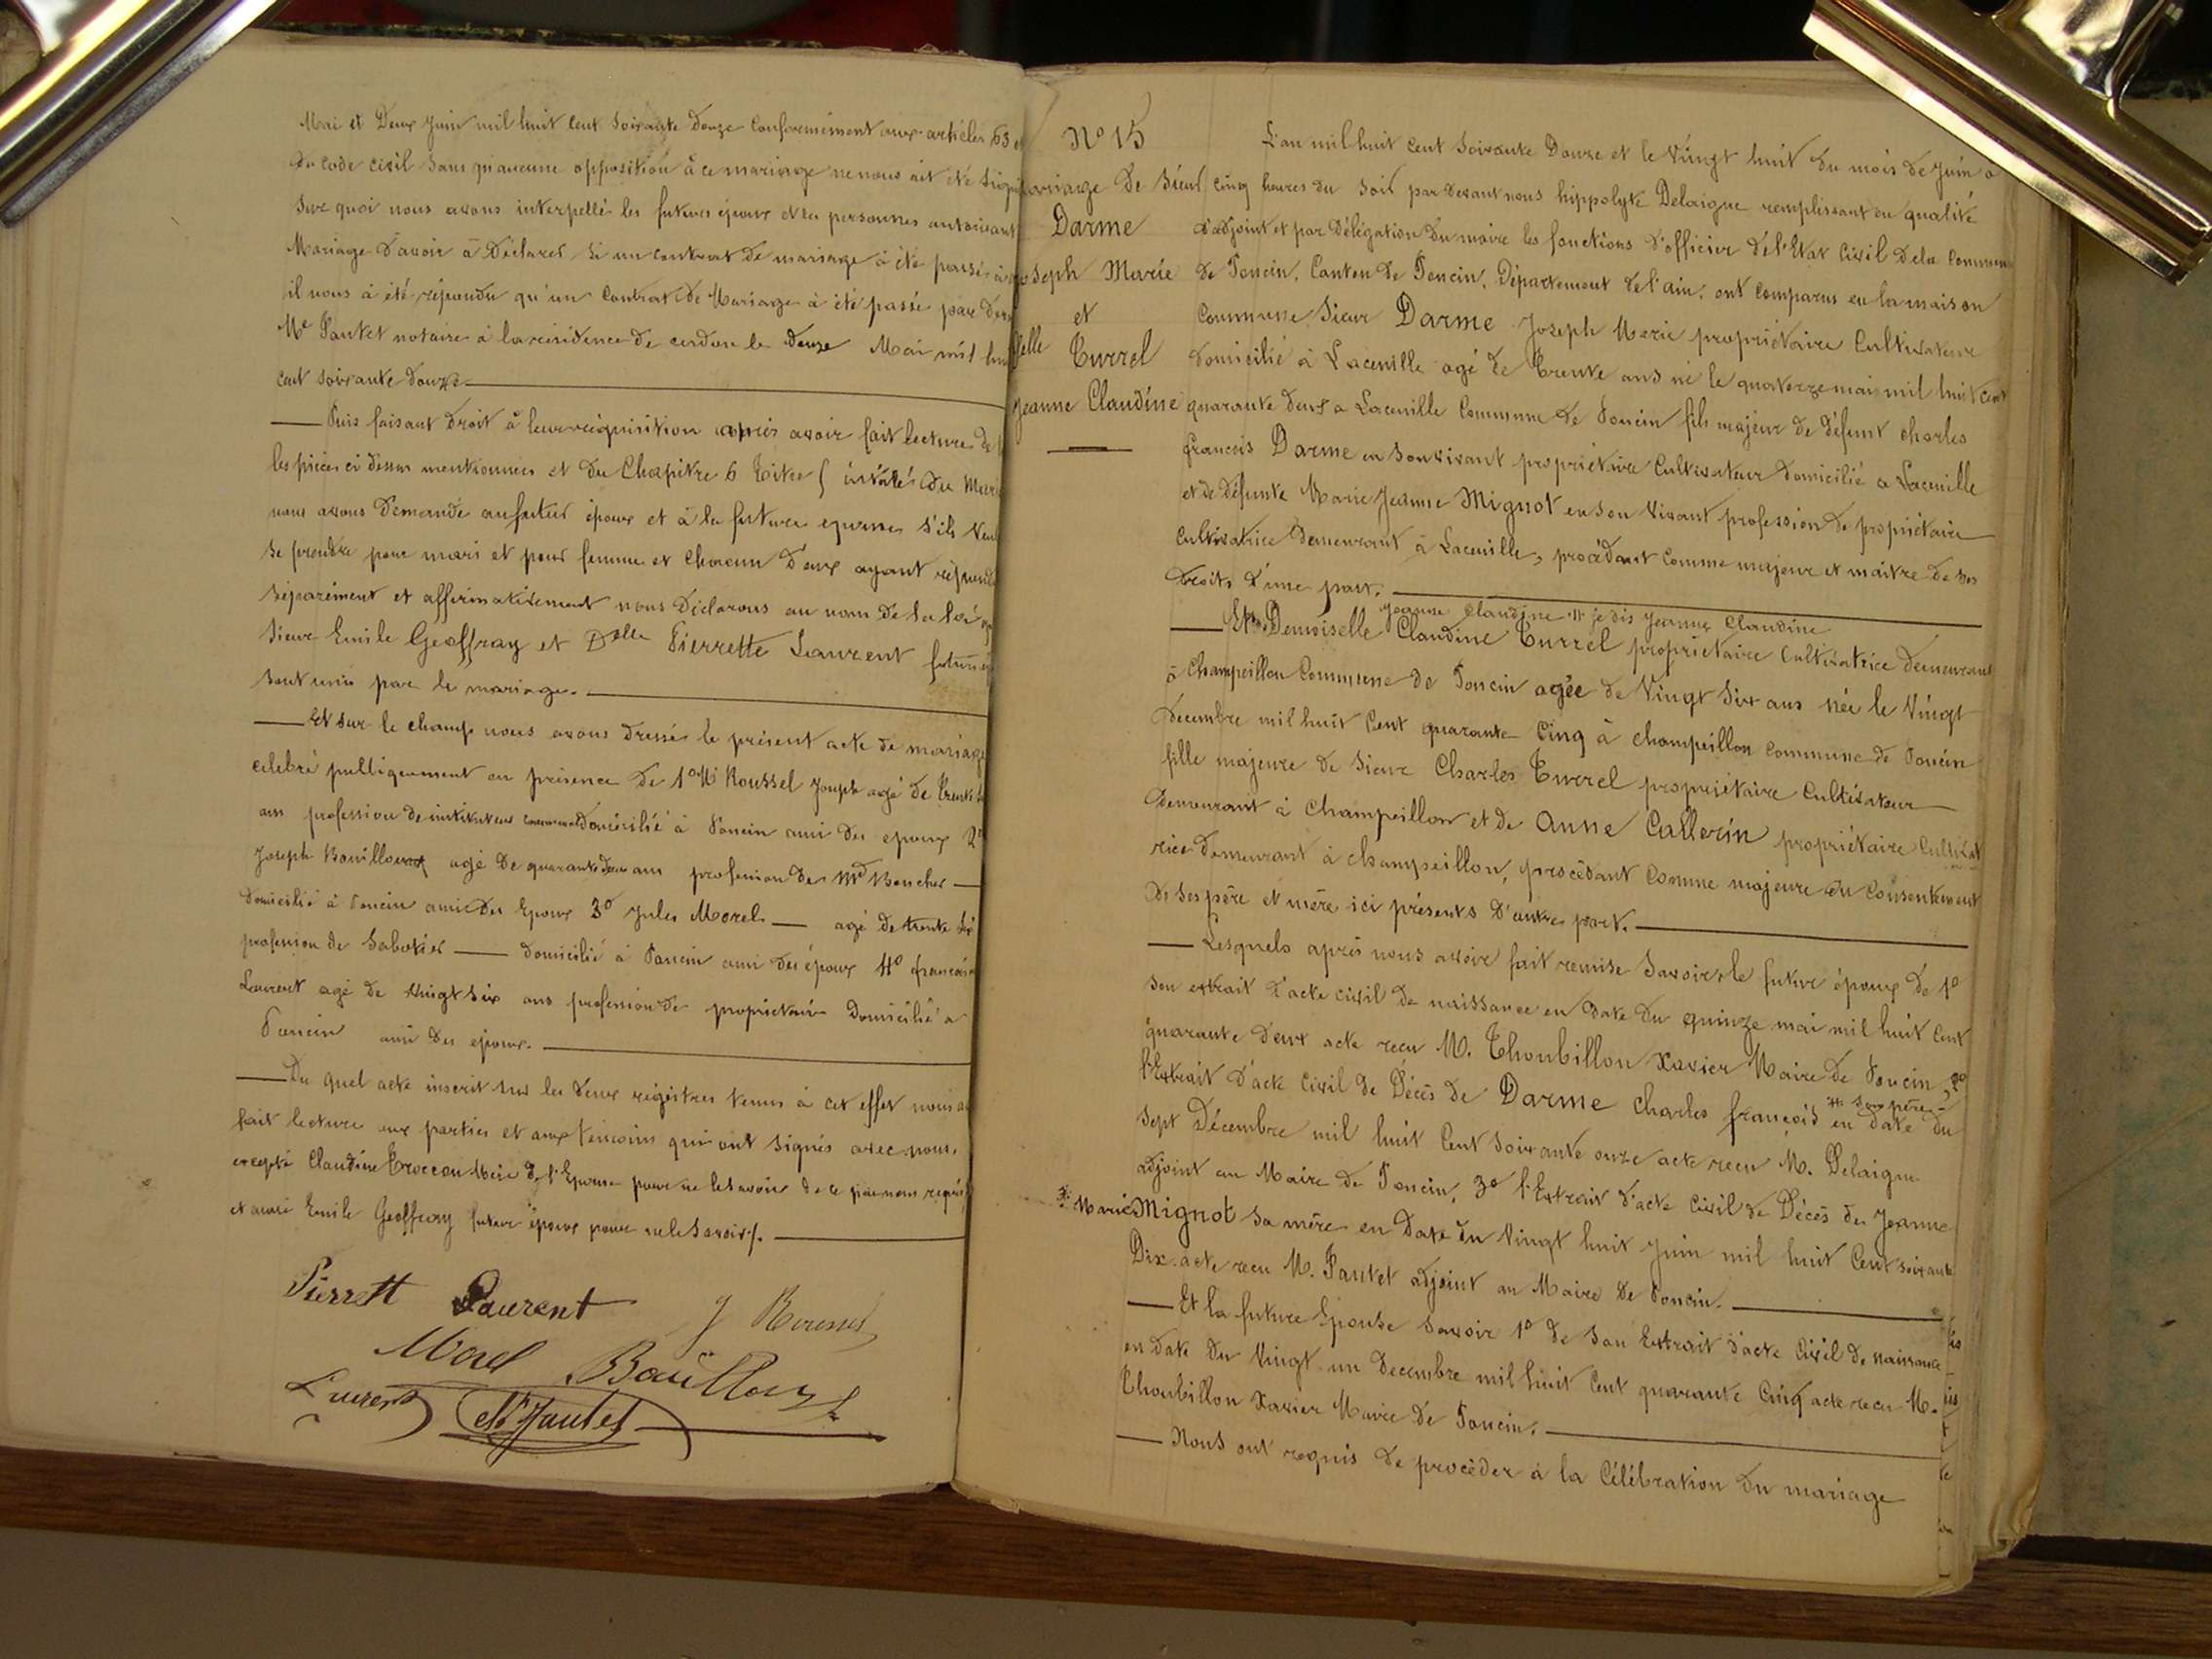 Mai et Deux Juin mil huit cent soixante douze Conformément aux articles 63 et
du code civil sans qu'aucune opposition à ce mariage ne nous ait été
Sur quoi nous avons interpellé les futurs époux et les personnes autorisant
Mariage d'avoir à Déclarer si un contrat de mariage à été passé
il nous à été répondu qu'un Contrat de Mariage à été passé par
Me Pautet notaire à la résidence de cerdon le douze Mai mil
cent soixante douze
Puis faisant droit à leur réquisition après avoir fait lecture de
les pièces ci dessus mentionnées et du Chapitre 6 titre 5 intitulé du
nous avons demandé au futur époux et à la future epouse s'ils
se prendre pour mari et pour femme et chacun d'eux ayant
séparément et affirmativement nous Déclarons au nom de la loi
Sieur Emile Geoffray et Delle Pierrette Laurent
sont unis par le mariage.
Et sur le champ nous avons dressé le présent acte de mariage
célébré publiquement en présence de 1o Mr Roussel Joseph agé de
ans profession de instituteur communal domicilié à Poncin ami des epoux 2o
Joseph Bouilloux agé de quarante deux ans profession de Md Boucher
domicilié à Poncin ami des Epoux 3o Jules Morel agé de trente
profession de Sabotier domicilié à Poncin ami des époux 4o françois
Laurent agé de Vingt six ans profession de propriétaire Domicilié a
Poncin ami des epoux.
Du quel acte inscrit sur les deux régistres tenus à cet effet nous
fait lecture aux parties et aux témoins qui ont signés avec nous,
excepté Claudine Troccon Mère de l'Epouse pour ne le savoir de ce par nous
et aussi Emile Geoffray futur époux pour ne le savoir.
Pierrett Laurent J Roussel
Morel Bouilloux
Laurent Pautet
No 15
Mariage de Sieur
Darme
Joseph Marie
et
Turrel
Jeanne Claudine
L'an mil huit cent soixante Douze et le Vingt huit du mois de Juin a
cinq heures du soir par devant nous hippolyte Delaigue remplissant en qualité
d'adjoint et par Délégation du maire les fonctions d'officier de l'Etat Civil de la Commune
de Poncin, Canton de Poncin, Département de l'ain, ont comparus en la maison
Commune Sieur Darme Joseph Marie propriétaire Cultivateur
domicilié à Lacenille agé de Trente ans né le quatorze mai mil huit cent
quarante deux a Lacenille Commune de Poncin fils majeur de défunt charles
françois Darme en son vivant propriétaire Cultivateur domicilié a Lacenille
et de défunte Marie Jeanne Mignot en son Vivant profession de propriétaire
Cultivatrice demeurant à Lacenille, procédant comme majeur et maitre de ses
droits d'une part.
Jeanne Claudine je dis Jeanne Claudine
Et Demoiselle Claudine Turrel propriétaire Cultivatrice demeurant
à Champeillon Commune de Poncin agée de Vingt Six ans née le Vingt
Decembre mil huit Cent quarante Cinq à champeillon commune de Poncin
fille majeure de Sieur Charles Turrel propriétaire Cultivateur
demeurant à Champeillon et de Anne Callerin propriétaire
demeurant à champeillon, procédant comme majeure du consentement
de ses père et mère ici présents d'autre part.
Lesquels après nous avoir fait remise Savoir, le futur époux de 1o
son extrait d'acte civil de naissance en date du quinze mai mil huit Cent
quarante deux acte recu M. Thoubillon Xavier Maire de Poncin, 2o
l'Extrait d'acte Civil de Décès de Darme Charles françois en date du
son père
Sept Décembre mil huit Cent soixante onze acte recu M. Delaigue
adjoint au Maire de Poncin, 3o l'Extrait d'acte Civil de Décès de Jeanne
Marie Mignot sa mère en Date du Vingt huit Juin mil huit Cent soixante
Dix acte recu M. Pautet adjoint au Maire de Poncin.
Et la future Epouse savoir 1o de son Extrait d'acte Civil de naissance
en date du Vingt un Decembre mil huit Cent quarante Cinq acte recu M.
Thoubillon Xavier Maire de Poncin.
Nous ont requis de procéder à la Célébration du mariage